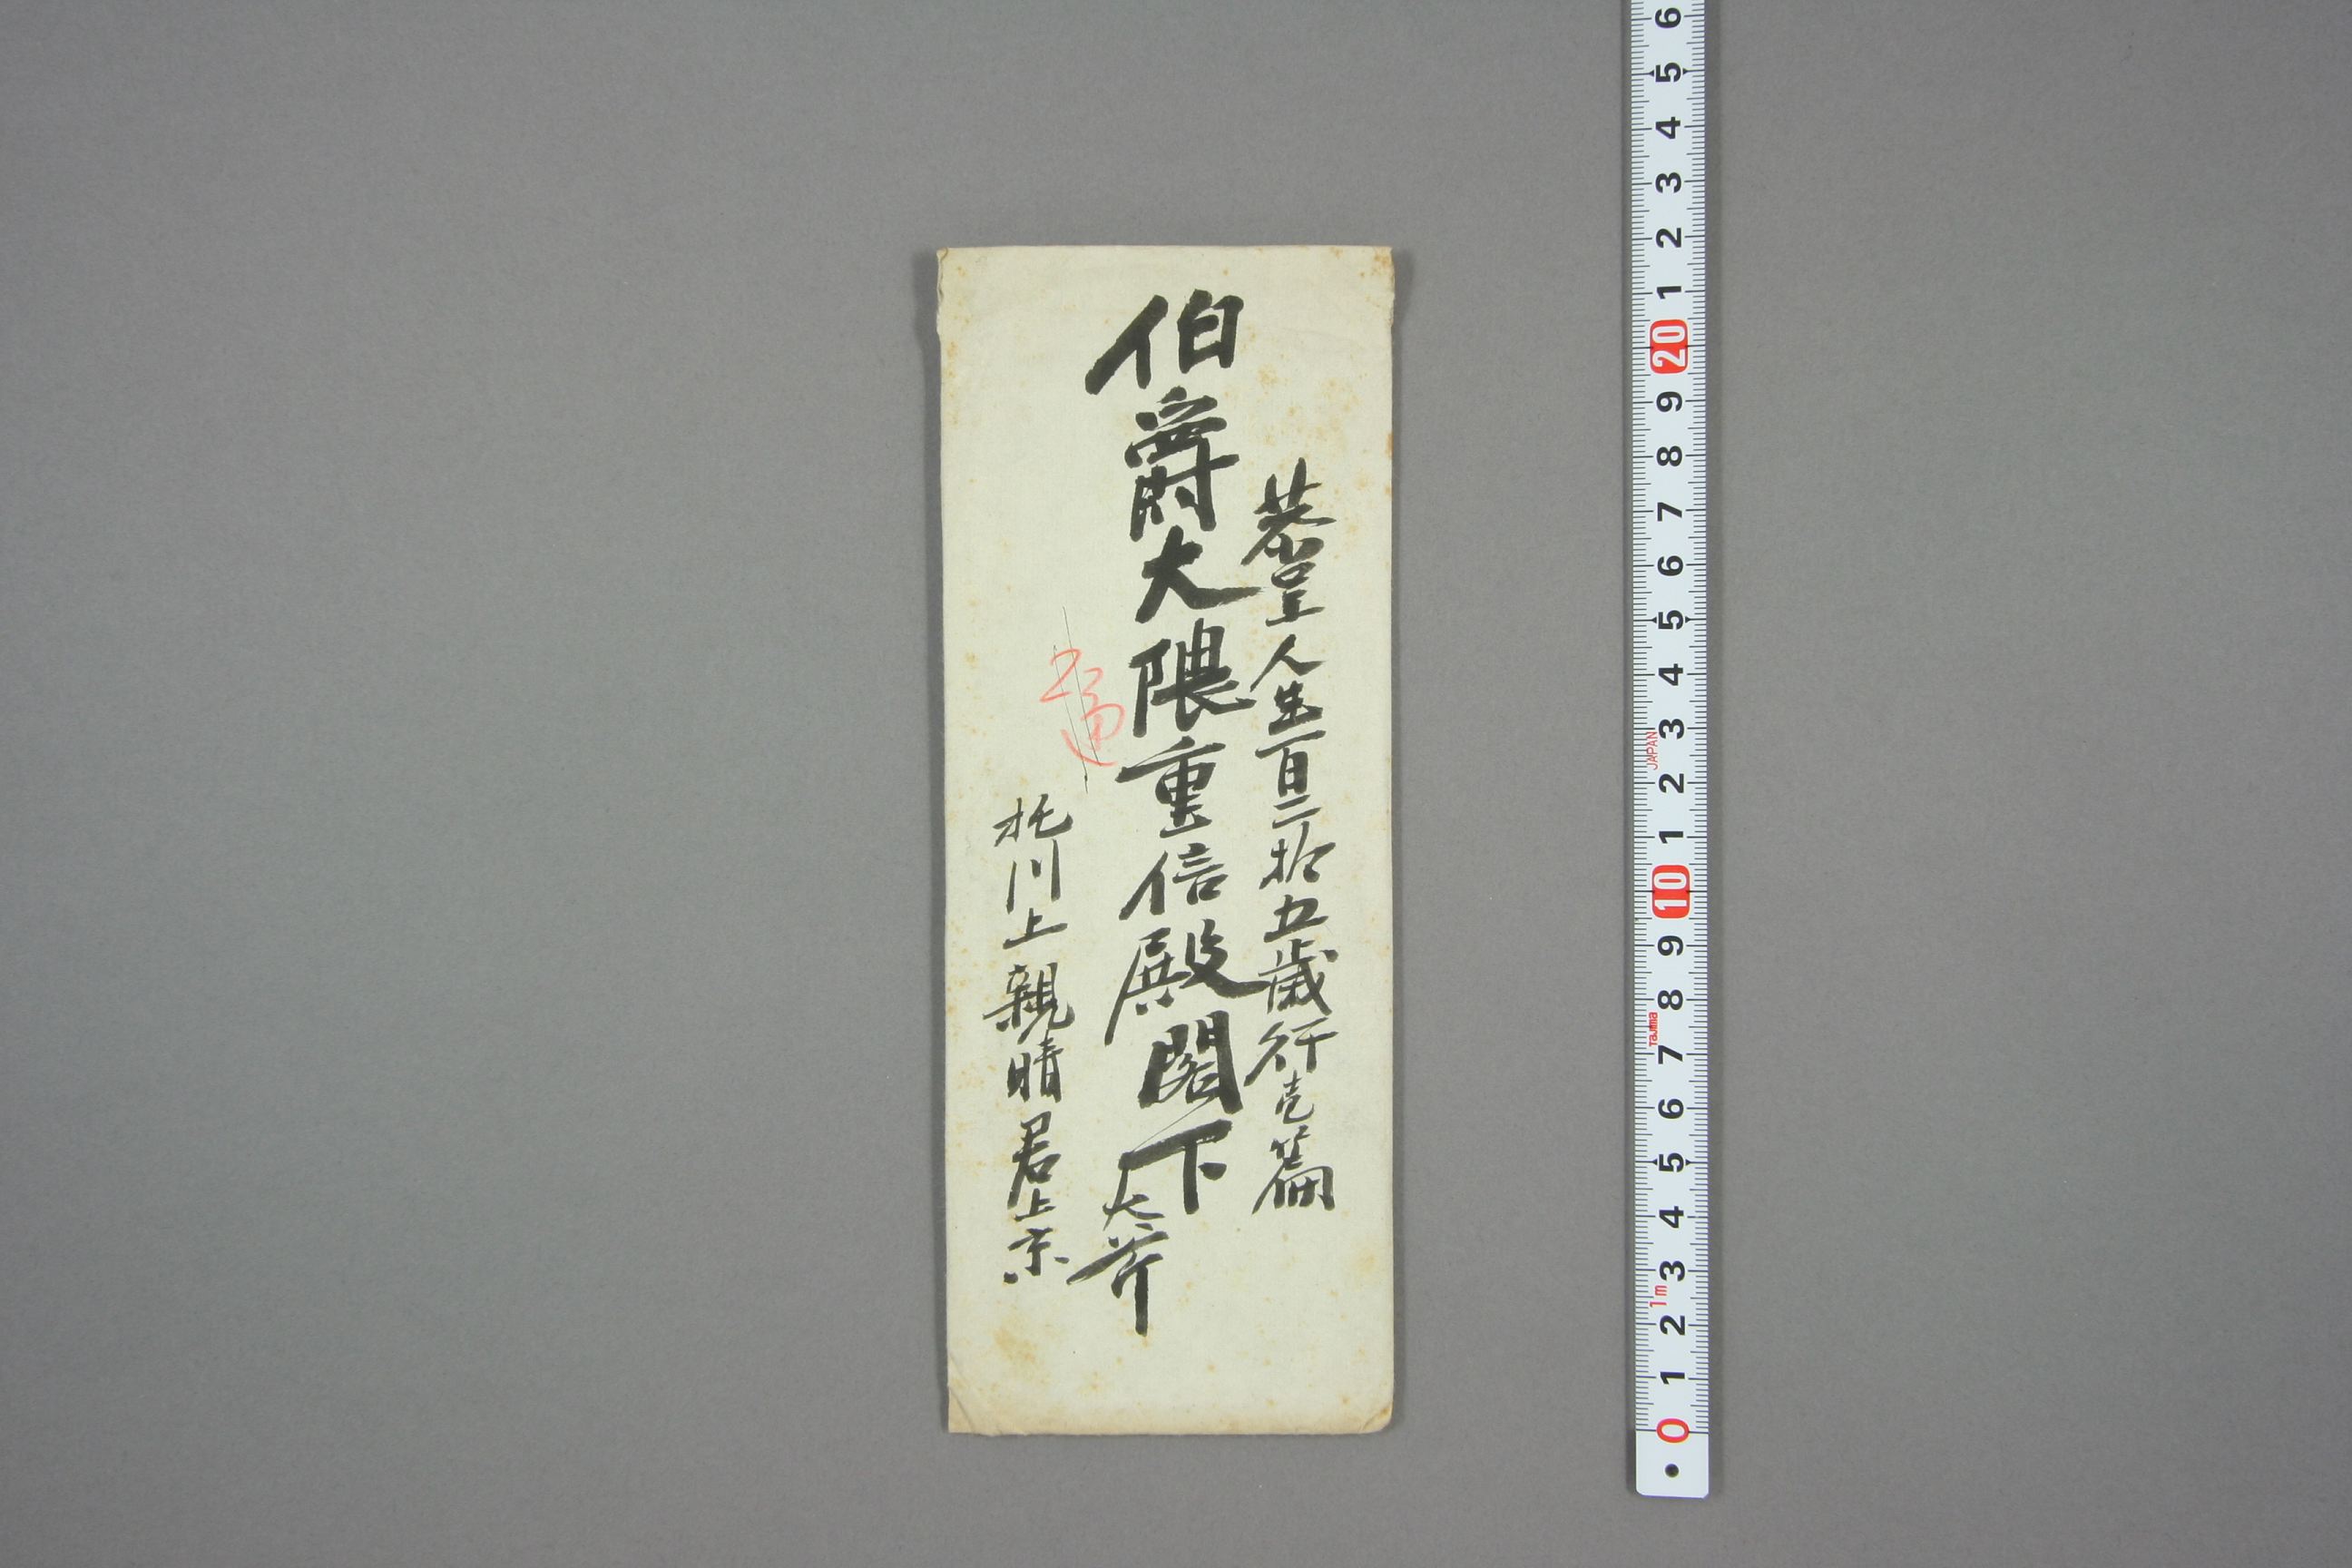 恭呈人生百二拾五歳行壱篇
伯爵大隈重信殿閣下
托川上親晴君上京
6
5
4
3
2
1
20
9
8
7
6
5
4
3
2
1
10
9
8
7
6
5
4
3
2
1
0
JAPAN
Tajima
1m